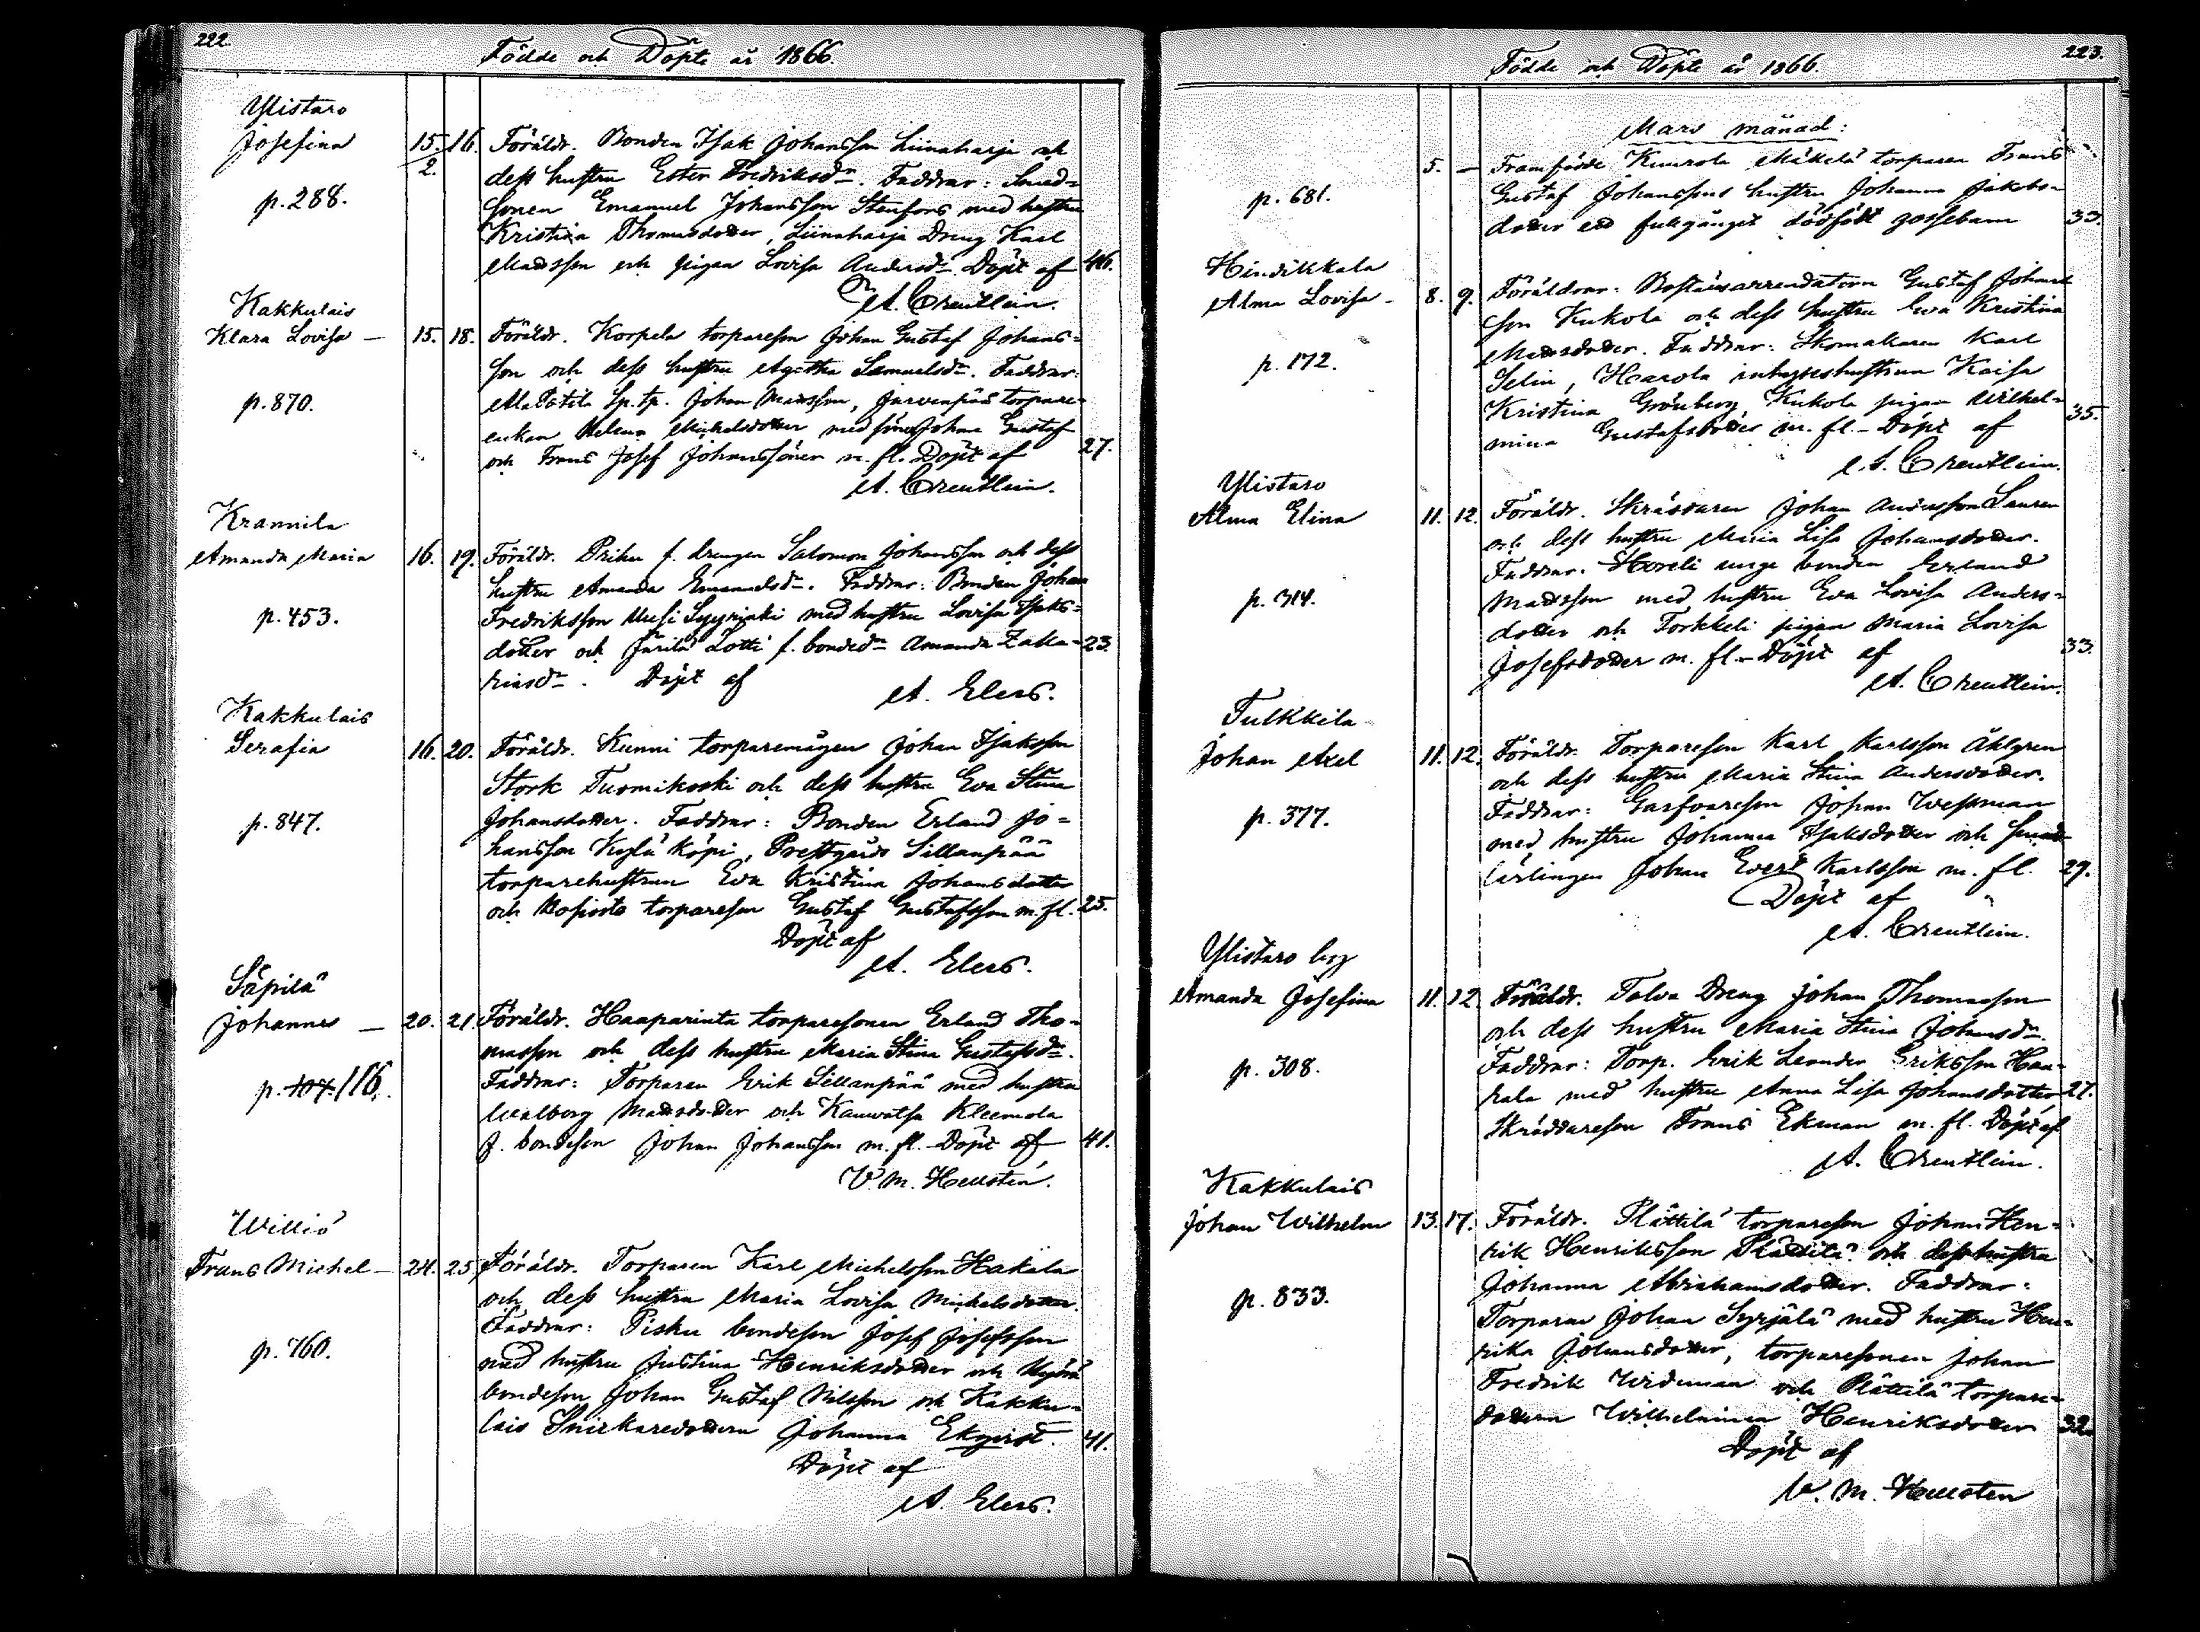 222.
Födde och Döpte år 1866.
Ylistaro
Josefina 15. 16. Föräldr. Bonden Isak Johansson Liinaharja och
2. dess hustru Ester Fredriksdr. Faddrar: Smed-
p. 288. sonen Emanuel Johansson Stenfors med hustru
Kristina Thomasdotter, Liinaharja Dreng Karl
Mattsson och pigan Lovisa Andersdr. Döpt af 46.
A. Creutlein.
Kakkulais
Klara Lovisa — 15. 18. Föräldr. Korpela torpareson Johan Gustaf Johans-
son och dess hustru Agatha Samuelsdr. Faddrar:
p. 870. Sp. tp. Johan Mattsson, Jarvenpää torpare-
enkan Helena Michelsdotter med söner Johan Gustaf
och Frans Josef Johanssöner m. fl. Döpt af 27.
A. Creutlein.
Krannila
Amanda Maria 16. 19. Föräldr. f. drengen Salomon Johansson och dess
hustru Amanda Emanuelsdr. Faddrar: Bonden Johan
p. 453. Fredriksson Uusi Syyrjaki med hustru Lovisa Isaks-
dotter och Lotti f. bondedr Amanda Zaka- 23.
riasdr. Döpt af
A. Elers.
Kakkulais
Serafia 16. 20. Föräldr. Kunni torparemågen Johan Isaksson
Stork Tuomikoski och dess hustru Eva Stina
p. 847. Johansdotter. Faddrar: Bonden Erland Jo-
hansson Kylä Köpi, Prestgårds Sillanpää
torparehustrun Eva Kristina Johansdotter
och torpareson Gustaf Gustafsson m. fl. 25.
Döpt af
A. Elers.
Säpilä
Johannes — 20. 21. Föräldr. Haaparinta torparesonen Erland Tho-
masson och dess hustru Maria Stina Gustafsdr.
p. 107. 116. Faddrar: Torparen Erik Sillanpää med hustru
Walborg Mattsdotter och Kauvatsa Kleemola
f. bondeson Johan Johansson m. fl. Döpt af 41.
V. M. Hellstén.
Williö
Frans Michel — 24. 25. Föräldr. Torparen Karl Michelsson Hakala
och dess hustru Maria Lovisa Michelsdotter.
p. 760. Faddrar: Pisku bondeson Josef Josefsson
med hustru Justina Henriksdotter och
bondeson Johan Gustaf Nilsson och Kakku-
lais Snickaredottern Johanna Ekqvist. 41.
Döpt af
A. Elers.
223.
Födde och Döpte år 1866.
Mars månad:
5. — Framfödde Kinrola Mäkelä torparen Frans
p. 681. Gustaf Johanssons hustru Johanna Jakobs-
dotter ett fullgånget dödfödt gossebarn 33.
Hindikkala
Alma Lovisa — 8. 9. Föräldrar: Gustaf Johans-
son Kukola och dess hustru Eva Kristina
p. 172. Mattsdotter. Faddrar: Skomakaren Karl
Selin, Harola inhyseshustrun Kaisa
Kristina Grönberg, Kukola pigan Wilhel- 35.
mina Gustafsdotter m. fl. — Döpt af
A. Creutlein.
Ylistaro
Alma Elina 11. 12. Föräldr. Skräddaren Johan Andersson Lauren
och dess hustru Maria Lisa Johansdotter.
Faddrar. unge bonden Erland
p. 314. Mattsson med hustru Eva Lovisa Anders-
dotter och Torkkeli pigan Maria Lovisa 33.
Josefsdotter m. fl. — Döpt af
A. Creutlein.
Tulkkila
Johan Axel 11. 12. Föräldr. Torpareson Karl Karlsson Åhlgren
och dess hustru Maria Stina Andersdotter.
p. 377. Faddrar: Garfvareson Johan Wessman
med hustru Johanna Isaksdotter och Smed-
lärlingen Johan Evert Karlsson m. fl. 29.
Döpt af
A. Creutlein.
Ylistaro by
Amanda Josefina 11. 12. Föräldr. Talva Dreng Johan Thomasson
och dess hustru Maria Stina Johansdr.
p. 308. Faddrar: Torp. Erik Leander Eriksson Han-
kala med hustru Anna Lisa Johansdotter, 27.
Skräddareson Frans Ekman m. fl. Döpt af
A. Creutlein.
Kakkulais
Johan Wilhelm 13. 17. Föräldr. Plättilä torpareson Johan Hen-
rik Henriksson Plättilä och dess hustru
Johanna Abrahamsdotter. Faddrar:
p. 833. Torparen Johan Syrjälä med hustru Hen-
rika Johansdotter, torparesonen Johan
Fredrik Wideman och Plättilä torpare-
dottern Wilhelmina Henriksdotter 32.
Döpt af
V. M. Hellsten